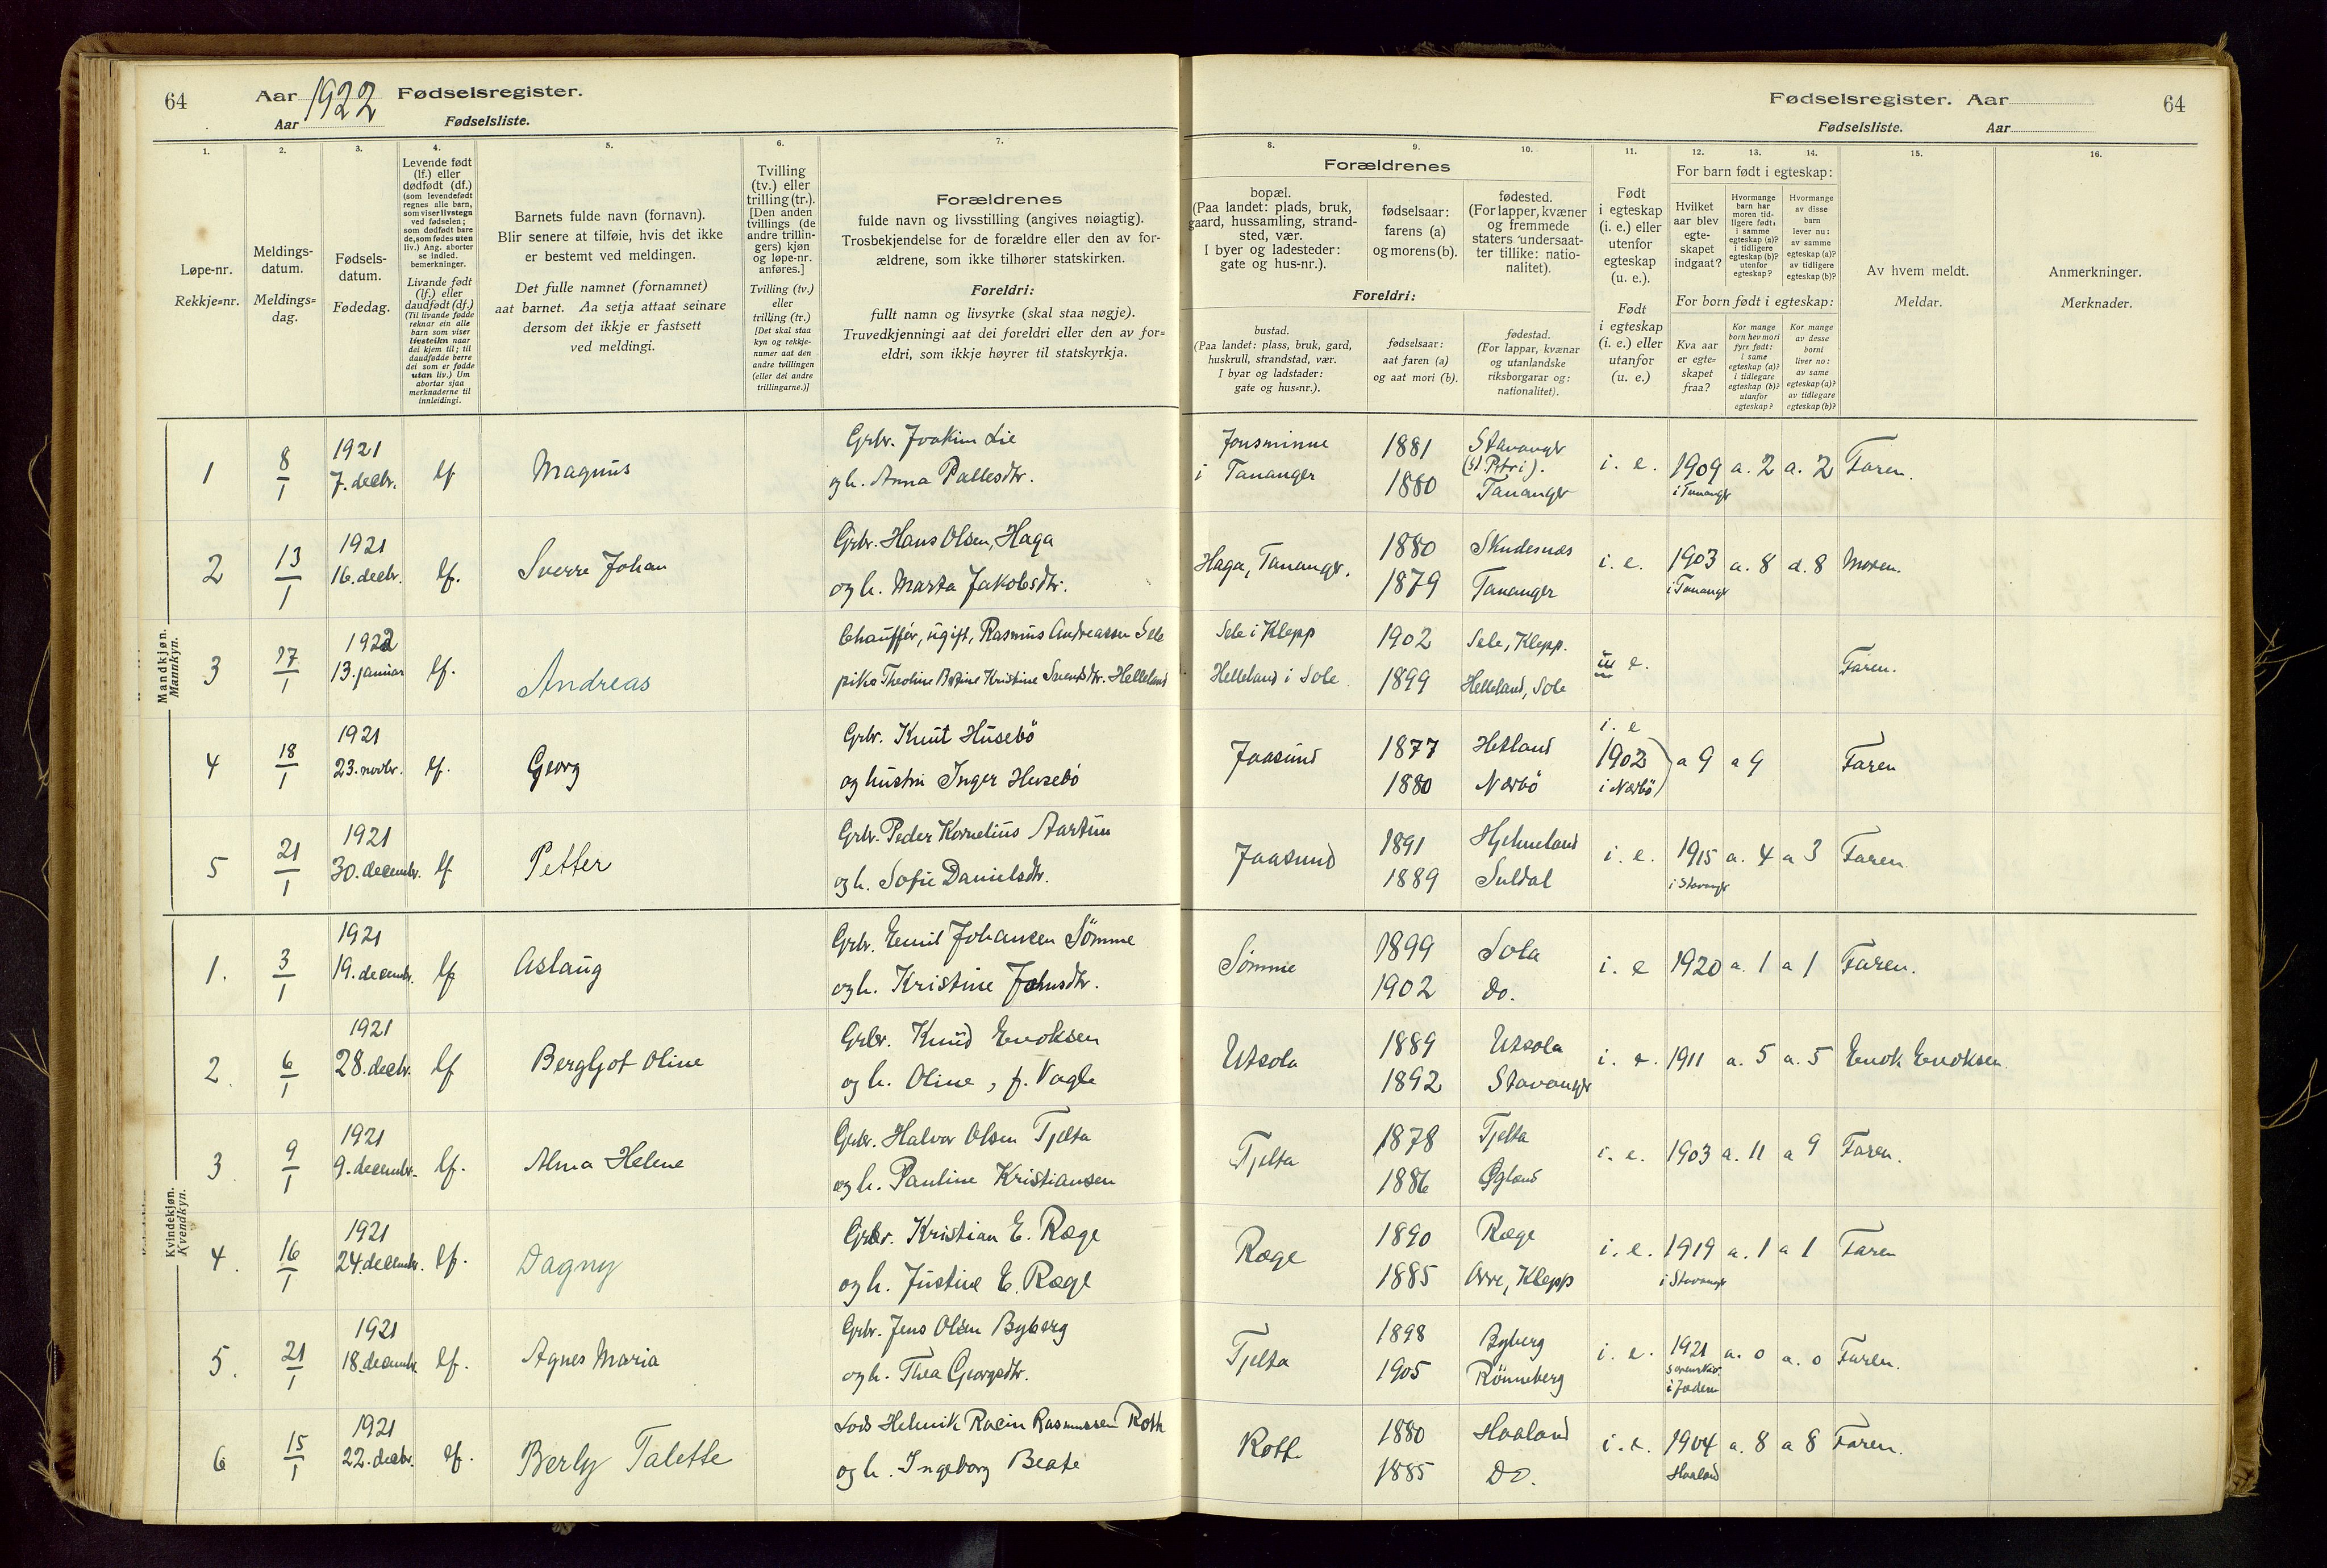 64 Aar 1922 Fødselsregister.
Aar Fødselsliste.
Fødselsregister. Aar 64
Fødselsliste. Aar
1. 2. 3. 4. 5. 6. 7.
Løpe-nr.
Rekkje=nr.
Meldings-
datum.
Meldings=
dag.
Fødsels-
datum.
Fødedag.
Levende født
(lf.) eller
dødfødt (df.)
(som levendefødt
regnes alle barn,
som viser livstegn
ved fødselen;
som dødfødt bare
de, som fødes uten
liv.) Ang. aborter
se indled.
bemerkninger.
Livande født
(lf.) eller
daudfødt (df.)
(Til livande fødde
reknar ein alle
barn som viser
livsteikn naar
dei kjem til; til
daudfødde berre
dei som er fødde
utan liv.) Um
abortar sjaa
merknaderne til
innleidingi.
Barnets fulde navn (fornavn).
Blir senere at tilføie, hvis det ikke
er bestemt ved meldingen.
Det fulle namnet (fornamnet)
aat barnet. Aa setja attaat seinare
dersom det ikkje er fastsett
ved meldingi.
Tvilling
(tv.) eller
trilling (tr.).
[Den anden
tvillings (de
andre trillin-
gers) kjøn
og løpe-nr.
anføres.]
Tvilling (tv.)
eller
trilling (tr.)
[Det skal staa
kyn og rekkje-
numer aat den
andre tvillingen
(eller dei andre
trillingarne.)]
Forældrenes
fulde navn og livsstilling (angives nøiagtig).
Trosbekjendelse for de forældre eller den av for-
ældrene, som ikke tilhører statskirken.
Foreldri:
fullt namn og livsyrke (skal staa nøgje).
Truvedkjenningi aat dei foreldri eller den av for=
eldri, som ikkje høyrer til statskyrkja.
8. 9. 10. 11. 12. 13. 14. 15. 16.
Forældrenes
bopæl.
(Paa landet: plads, bruk,
gaard, hussamling, strand-
sted, vær.
I byer og ladesteder:
gate og hus-nr.).
fødselsaar:
farens (a)
og morens (b).
fødested.
(For lapper, kvæner
og fremmede
staters undersaat-
ter tillike: natio-
nalitet).
Foreldri:
bustad.
(Paa landet: plass, bruk, gard,
huskrull, strandstad, vær.
I byar og ladstader:
gate og hus=nr.).
fødselsaar:
aat faren (a)
og aat mori (b).
fødestad.
(For lappar, kvænar
og utanlandske
riksborgarar og:
nationalitet).
Født
i egteskap
(i. e.) eller
utenfor
egteskap
(u. e.).
Født
i egteskap
(i. e.) eller
utanfor
(u. e.)
For barn født i egteskap:
Hvilket
aar blev
egte-
skapet
indgaat?
Hvormange
barn har
moren tid-
ligere født:
i samme
egteskap (a)?
i tidligere
egteskap (b)?
utenfor
egteskap?
Hvormange
av disse
barn
lever nu:
av samme
egteskap (a)?
av tidligere
egteskap (b)?
For born født i egteskap:
Kva aar
er egte=
skapet
fraa?
Kor mange
born hev mori
fyrr født:
i same
egteskap (a)?
i tidlegare
egteskap (b)?
utanfor
egteskap?
Kor mange
av desse
borni
liver no:
av same
egteskap (a)?
av tidlegare
egteskap (b)?
Av hvem meldt.
Meldar.
Anmerkninger.
Merknader.
Mandkjøn.
Mannkyn.
1 8/1 1921 7. decbr. lf Magnus Grbr. Joakim Lie
og h. Anna Pallesdtr.
Jonsminne i Tananger 1881 1880 Stavanger (St. Petri). Tananger i. e. 1909 i Tananger a. 2 a. 2 Faren.
2 13/1 1921 16. decbr. lf. Sverre Johan Grbr. Hans Olsen, Haga
og h. Marta Jakobsdtr.
Haga, Tananger. 1880 1879 Skudesnæs Tananger i. e. 1903 i Tananger a. 8 a. 8 Moren.
3 17/1 1922 13. januar lf. Andreas Chauffør, ugift, Rasmus Andreassen Sele
pike Theoline Bertine Kristine Svendsdtr. Helleland
Sele i Klepp Helleland i Sole 1902 1899 Sele, Klepp. Helleland, Sole u e. Faren.
4 18/1 1921 23. novbr. lf. Georg Grbr. Knut Husebö
og hustru Inger Husebö
Jaasund 1877 1880 Hetland Nærbö i. e 1902 i Nærbö) a 9 a 9 Faren
5 21/1 1921 30. decembr. lf Petter Grbr. Peder Kornelius Aartun
og h. Sofie Danielsdtr.
Jaasund 1891 1889 Hjelmeland Suldal i. e. 1915 i Stavanger a. 4 a 3 Faren.
Kvindekjøn.
Kvendkyn.
1. 3/1 1921 19. decembr. lf Aslaug Grbr. Emil Johansen Sömme
og h. Kristine Johnsdtr.
Sömme 1899 1902 Sola Do. i. e 1920 a. 1 a 1 Faren.
2. 6/1 1921 28. decbr. lf Bergljot Oline Grbr. Knud Enoksen
og h. Oline, f. Vagle
Utsola 1889 1892 Utsola Stavanger i. e. 1911 a. 5 a. 5 Enok Enoksen.
3. 9/1 1921 9. decembr. lf. Alma Helene Grbr. Halvor Olsen Tjelta
og h. Pauline Kristiansen
Tjelta 1878 1886 Tjelta Ogland i. e. 1903 a. 11 a 9 Faren.
4. 16/1 1921 24. decembr. lf. Dagny Grbr. Kristian E. Ræge
og h. Justine E. Ræge
Ræge 1890 1885 Ræge Orre, Klepp i. e. 1919 i Stavanger a. 1 a 1 Faren
5. 21/1 1921 18. decembr. lf. Agnes Maria Grbr. Jens Olsen Byberg
og h. Thea Georgsdtr.
Tjelta 1898 1905 Byberg Rönneberg i. e. 1921 i Jæderen a. 0 a. 0 Faren.
6 15/1 1921 22. decbr. lf. Berly Talette Lods Helmik Racin Rasmussen Roth
og h. Ingeborg Beate
Roth 1880 1885 Haaland Do. i. e. 1904 Haaland a. 8 a 8 Faren.